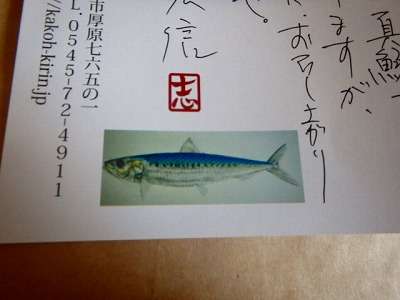 真鰯
ますが、
お召し上がり
信
志
市厚原七六五の一
L.0545-72-4911
//kakoh-kirin.jp